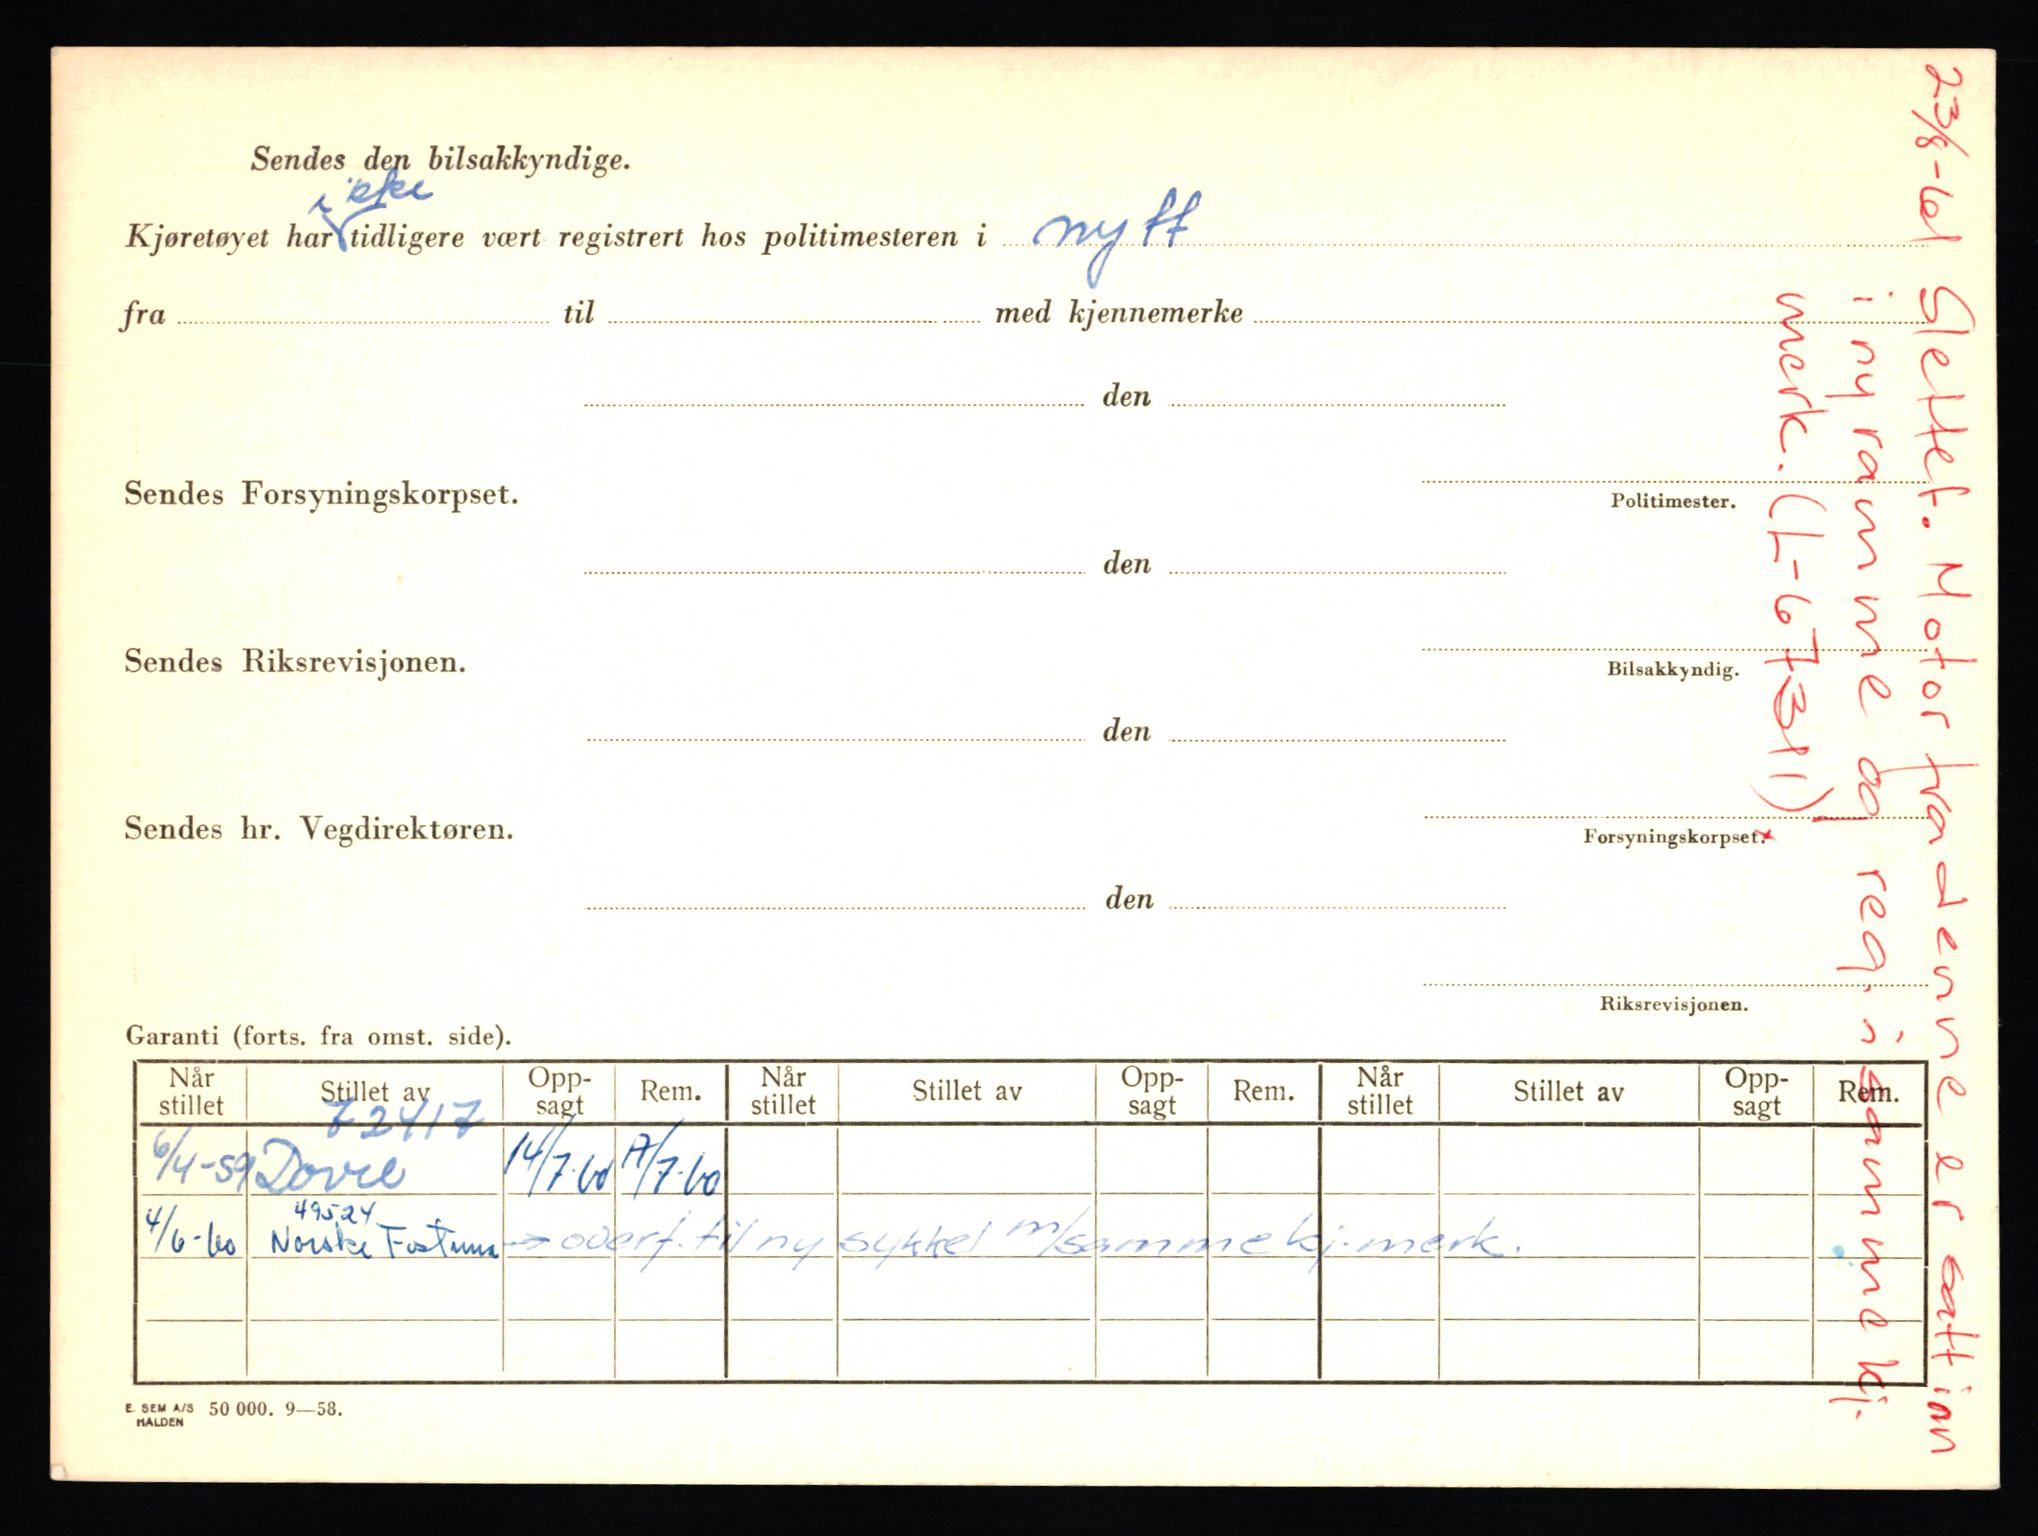 Sendes den bilsakkyndige.
ikke
Kjøretøyet har tidligere vært registrert hos politimesteren i nytt
fra til med kjennemerke
den
Sendes Forsyningskorpset.
Politimester.
den
Sendes Riksrevisjonen.
Bilsakkyndig.
den
Sendes hr. Vegdirektøren.
Forsyningskorpset.
den
Riksrevisjonen.
Garanti (forts. fra omst. side).
Når stillet Stillet av Opp-sagt Rem. Når stillet Stillet av Opp-sagt Rem. Når stillet Stillet av Opp-sagt Rem.
72417
6/4-59 Dovre 14/7-60 /7-60
49524
4/6-60 Norske Fortuna → overf. til ny sykkel m/samme kj.merk.
E. SEM A/S HALDEN 50 000. 9—58.
23/8-61 Slettet. Motor fra denne er satt inn
i ny ramme og reg. i samme kj.
merk. (L-67311)